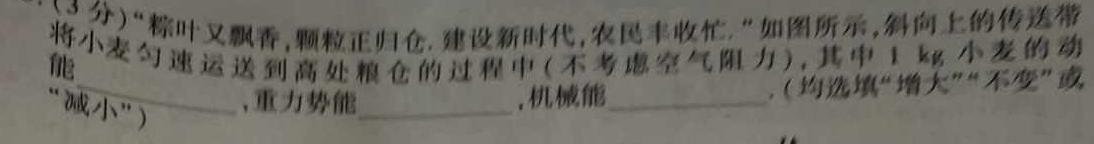 (3分)“粽叶又飘香,颗粒正归仓.建设新时代,农民丰收忙.”如图所示,斜向上的传送带
将小麦匀速运送到高处粮仓的过程中(不考虑空气阻力),其中1 kg小麦的动
能__________,重力势能__________,机械能__________.(均选填“增大”“不变”或
“减小”)